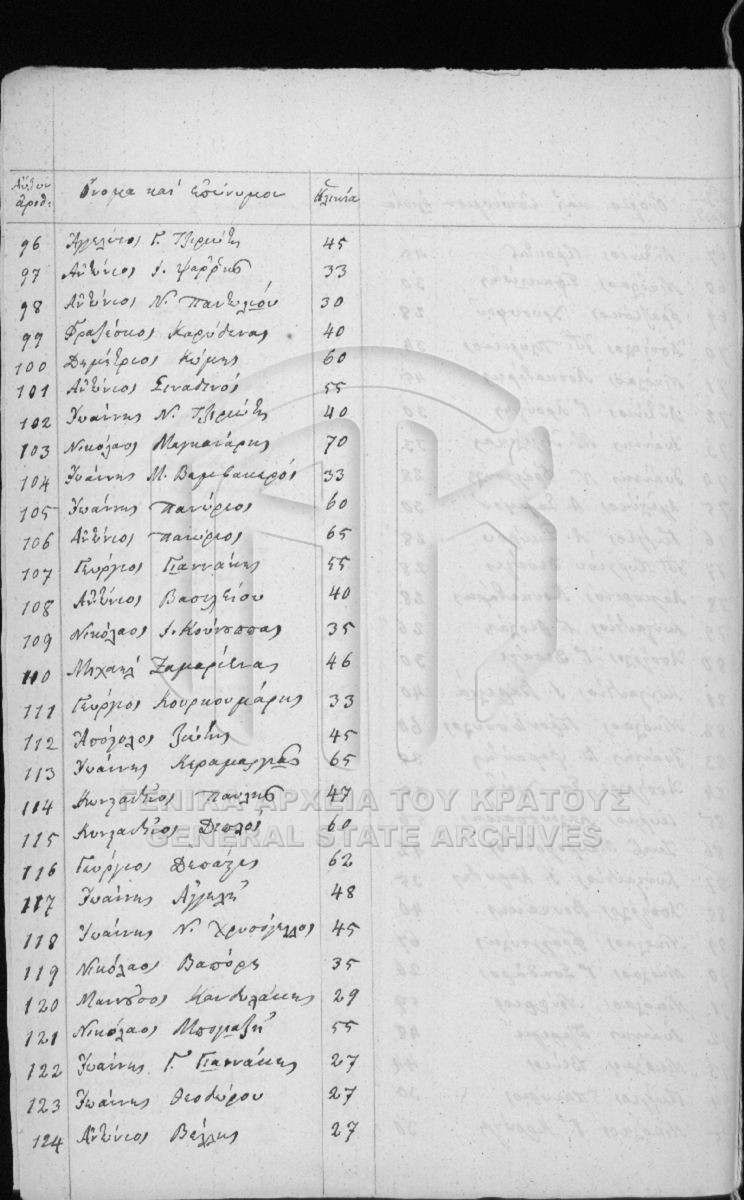 Αὔξων ἀριθ: Ὄνομα καὶ ἐπώνυμον Ἡλικία
96 Ἀγγελέτος Γ. Τζιριώτης 45
97 Ἀντώνιος Ι. Ψαρρᾶς 33
98 Ἀντώνιος Ν. 30
99 Φραζέσκος 40
100 Δημήτριος Κώμης 60
101 Ἀντώνιος Σιναδινός 55
102 Ἰωάννης Ν. Τζιριώτης 40
103 Νικόλαος Μαγκανάρης 70
104 Ἰωάννης Μ. Βαμβακερός 33
105 Ἰωάννης Πανώριος 60
106 Ἀντώνιος Πανώριος 65
107 Γεώργιος Γιαννάκης 55
108 Ἀντώνιος Βασιλείου 40
109 Νικόλαος Ι. Κούνουπας 35
110 Μιχαήλ Ζαμαρίενας 46
111 Γεώργιος Κουρκουμάρης 33
112 Ἀπόστολος Ζιώτης 45
113 Ἰωάννης Κεραμαργιᾶς 65
114 Κωνσταντῖνος Παυλῆς 47
115 Κωνσταντῖνος 60
116 Γεώργιος Δεπάστες 62
117 Ἰωάννης Ἀγγελῆ 48
118 Ἰωάννης Ν. Χρυσόγελος 45
119 Νικόλαος Βαπόρη 35
120 Μανοῦσος Κανδυλάκης 29
121 Νικόλαος 55
122 Ἰωάννης Γ. Γιαννάκης 27
123 Ἰωάννης Θεοδώρου 27
124 Ἀντώνιος Βέλλης 27
ΓΕΝΙΚΑ ΑΡΧΕΙΑ ΤΟΥ ΚΡΑΤΟΥΣ
GENERAL STATE ARCHIVES